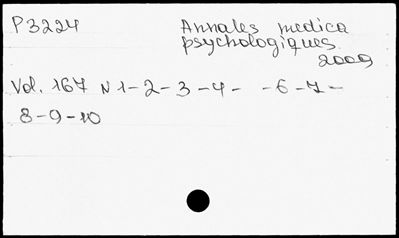 P3224 Annales medica
psychologiques
2009
Vol. 167 N 1-2-3-4- -6-7-
8-9-10